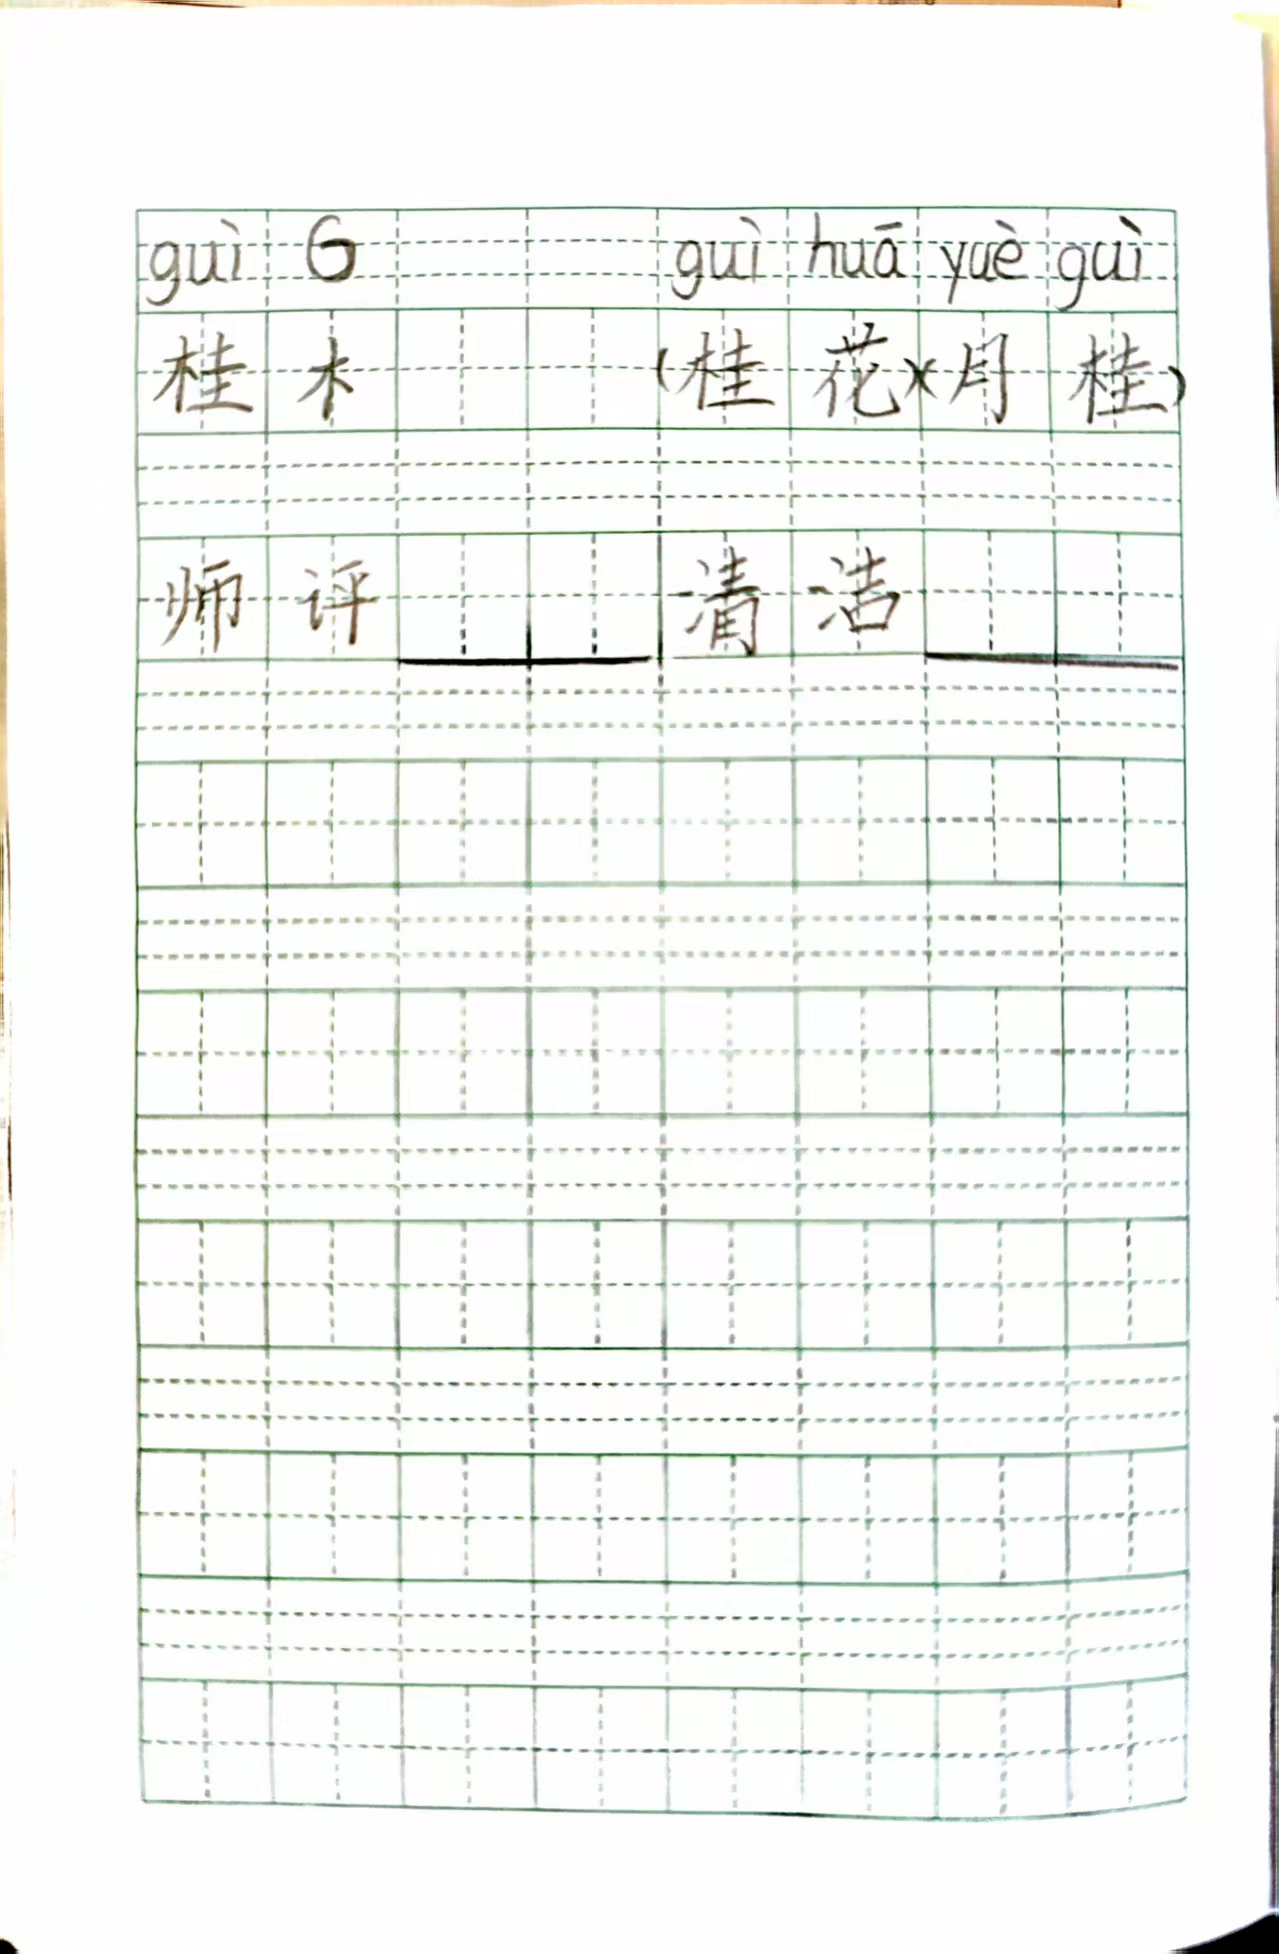 guì 6 guì huā yuè guì
桂 木 (桂 花)(月 桂)
师 评 清 洁